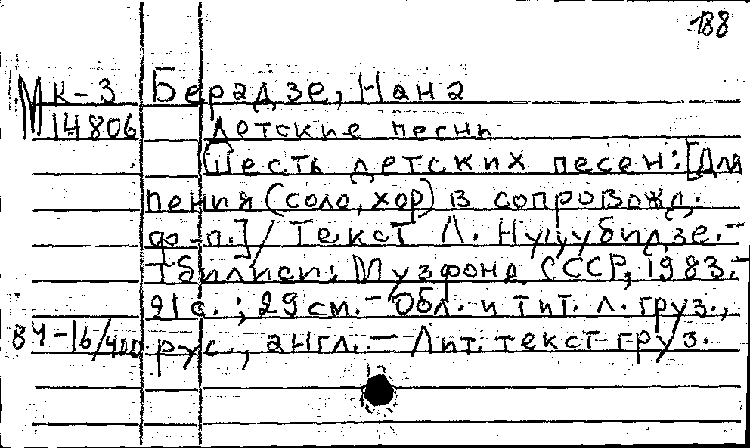 188
МК-3 Берадзе, Нана
14806 Детские песни
Шесть детских песен: [Для
пения (соло, хор) в сопровожд.
ф-п.] / Текст Л. Нуцубидзе. -
Тбилиси: Музфонд СССР, 1983. -
21 с. ; 29 см. - Обл. и тит. л. груз.,
В4-16/400 рус., англ. - Лит. текст груз.